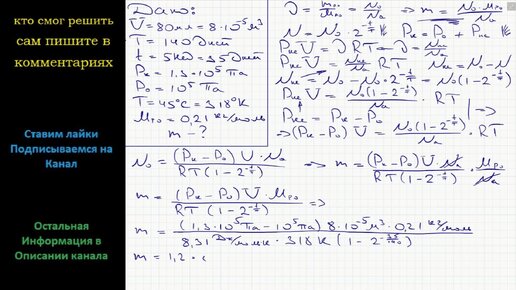 кто смог решить
сам пишите в
комментариях
Ставим лайки
Подписываемся на
Канал
Остальная
Информация в
Описании канала
Дано:
V = 80мл = 8·10⁻⁵ м³
T = 140 дней
t = 5нед = 35 дней
Pк = 1.3·10⁵ Па
P₀ = 10⁵ Па
T = 45°C = 318°K
Mpo = 0,21 кг/моль
m - ?
ν = mpo/Mpo = N₀/Na ⇒ m = N₀·Mpo/Na
N = N₀·2^(-t/T) Pк = P₀ + Pне
Pне V = ν RT ν = Nне/Na
Pне V = Nне/Na RT Nне = N₀ - N
Nне = N₀ - N₀·2^(-t/T)
Pне V = N₀(1-2^(-t/T))/Na · RT
Pне = Pк - P₀
⇒ (Pк - P₀) V = N₀(1-2^(-t/T))/Na · RT ⇒
N₀ = (Pк - P₀) V · Na / RT(1-2^(-t/T)) ⇒ m = (Pк - P₀) V · Na / RT(1-2^(-t/T)) · Mpo/Na
m = (Pк - P₀) V · Mpo / RT(1-2^(-t/T)) ⇒
m = (1,3·10⁵ Па - 10⁵ Па) 8·10⁻⁵ м³ · 0,21 кг/моль / 8,31 Дж/моль·К · 318 К (1-2^(-35/140))
m = 1,2 ·